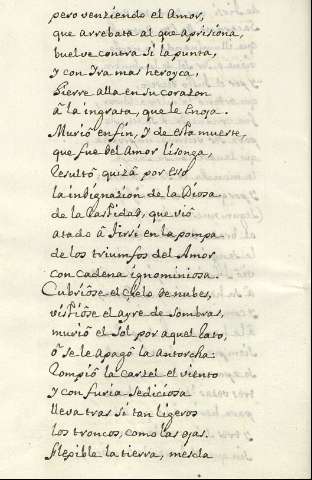 pero venziendo el Amor,
que arrebata al que aprisiona,
buelve contra si la punta,
y con Ira mas heroyca,
Hierre alla en su corazon
â la ingrata, que le Enoja.
Muriô en fin, y de esta muerte,
que fue del Amor lisonga,
Resultô quizâ por esso
la indignazion de la Diosa
de la Castidad, que viô
atado â Tirsi en la pompa
de los triumfos del Amor
con cadena ignominiosa.
Cubriôse el Çielo de nubes,
vistiôse el ayre de sombras,
muriô el sol por aquel rato,
ô se le apagô la antorcha.
Rompiô la carzel el viento
y con furia sediciosa
lleva tras si tan ligeros
los troncos, como las ojas.
flexible la tierra, mescla